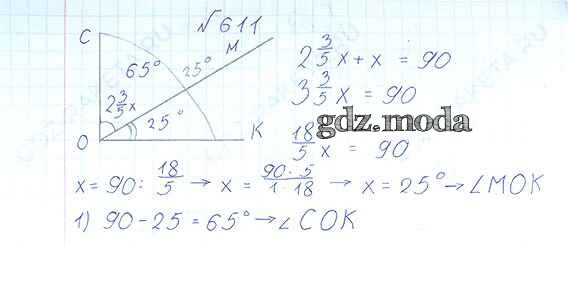 №611
C
M
65°
25°
2 3/5 x
25°
O
K
2 3/5 x + x = 90
3 3/5 x = 90
gdz.moda
18/5 x = 90
x = 90 : 18/5 → x = 90·5/1·18 → x = 25° → ∠MOK
1) 90 - 25 = 65° → ∠COK